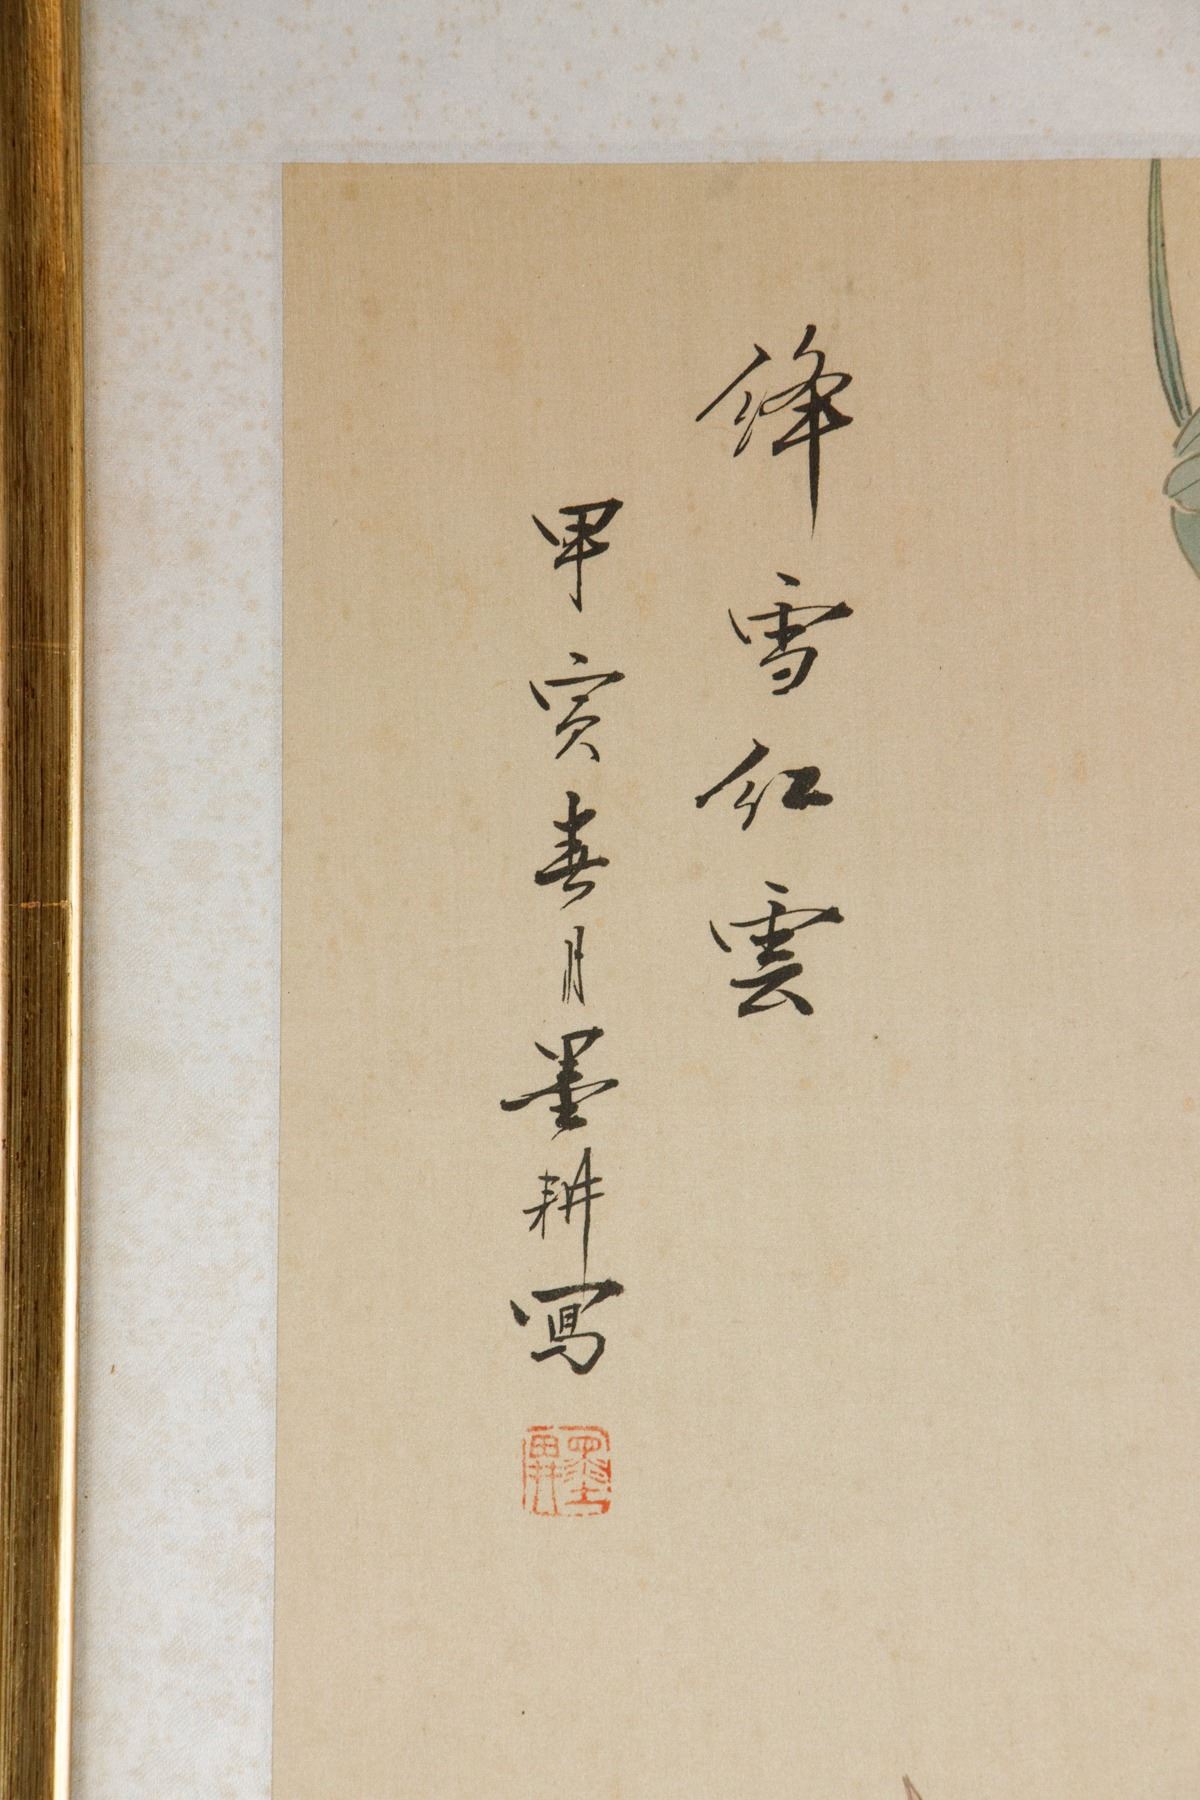 絳雪紅雲
甲寅春月墨耕寫
墨耕